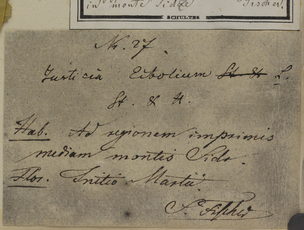 in monte Sidde Fischer.
Nr. 27.
Justicia Ecbolium St. & H. L.
St. & H.
Hab. Ad regionem imprimis
mediam montis Sidr.
Flor. Initio Martii.
Fischer